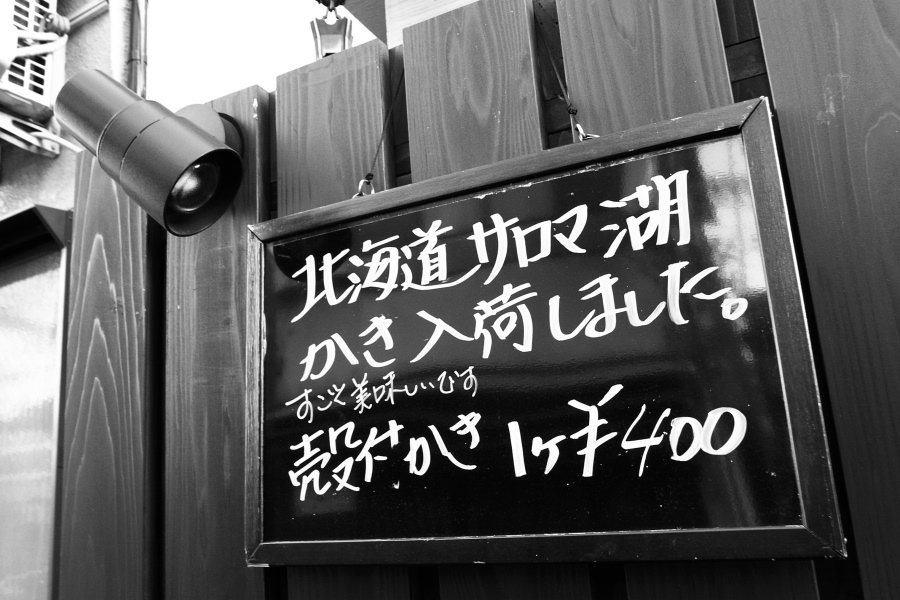 北海道サロマ湖
かき入荷しました。
すごく美味しいです
殻付かき 1ヶ¥400